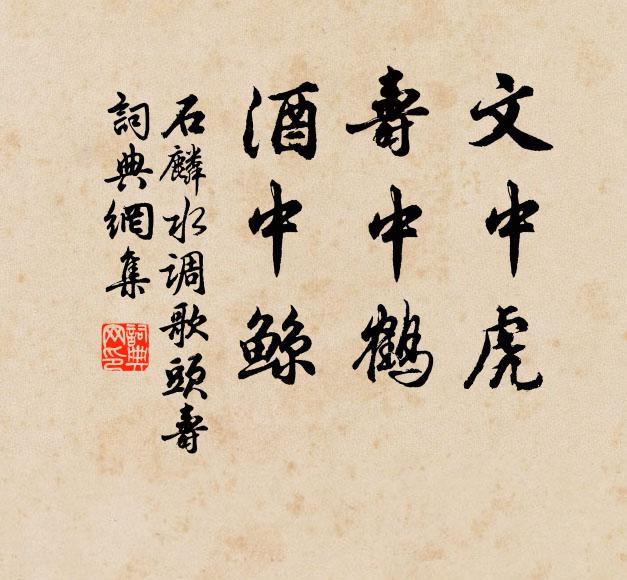 文中虎
壽中鶴
酒中鯨
石麟水调歌頭壽
詞典網集
詞典網印